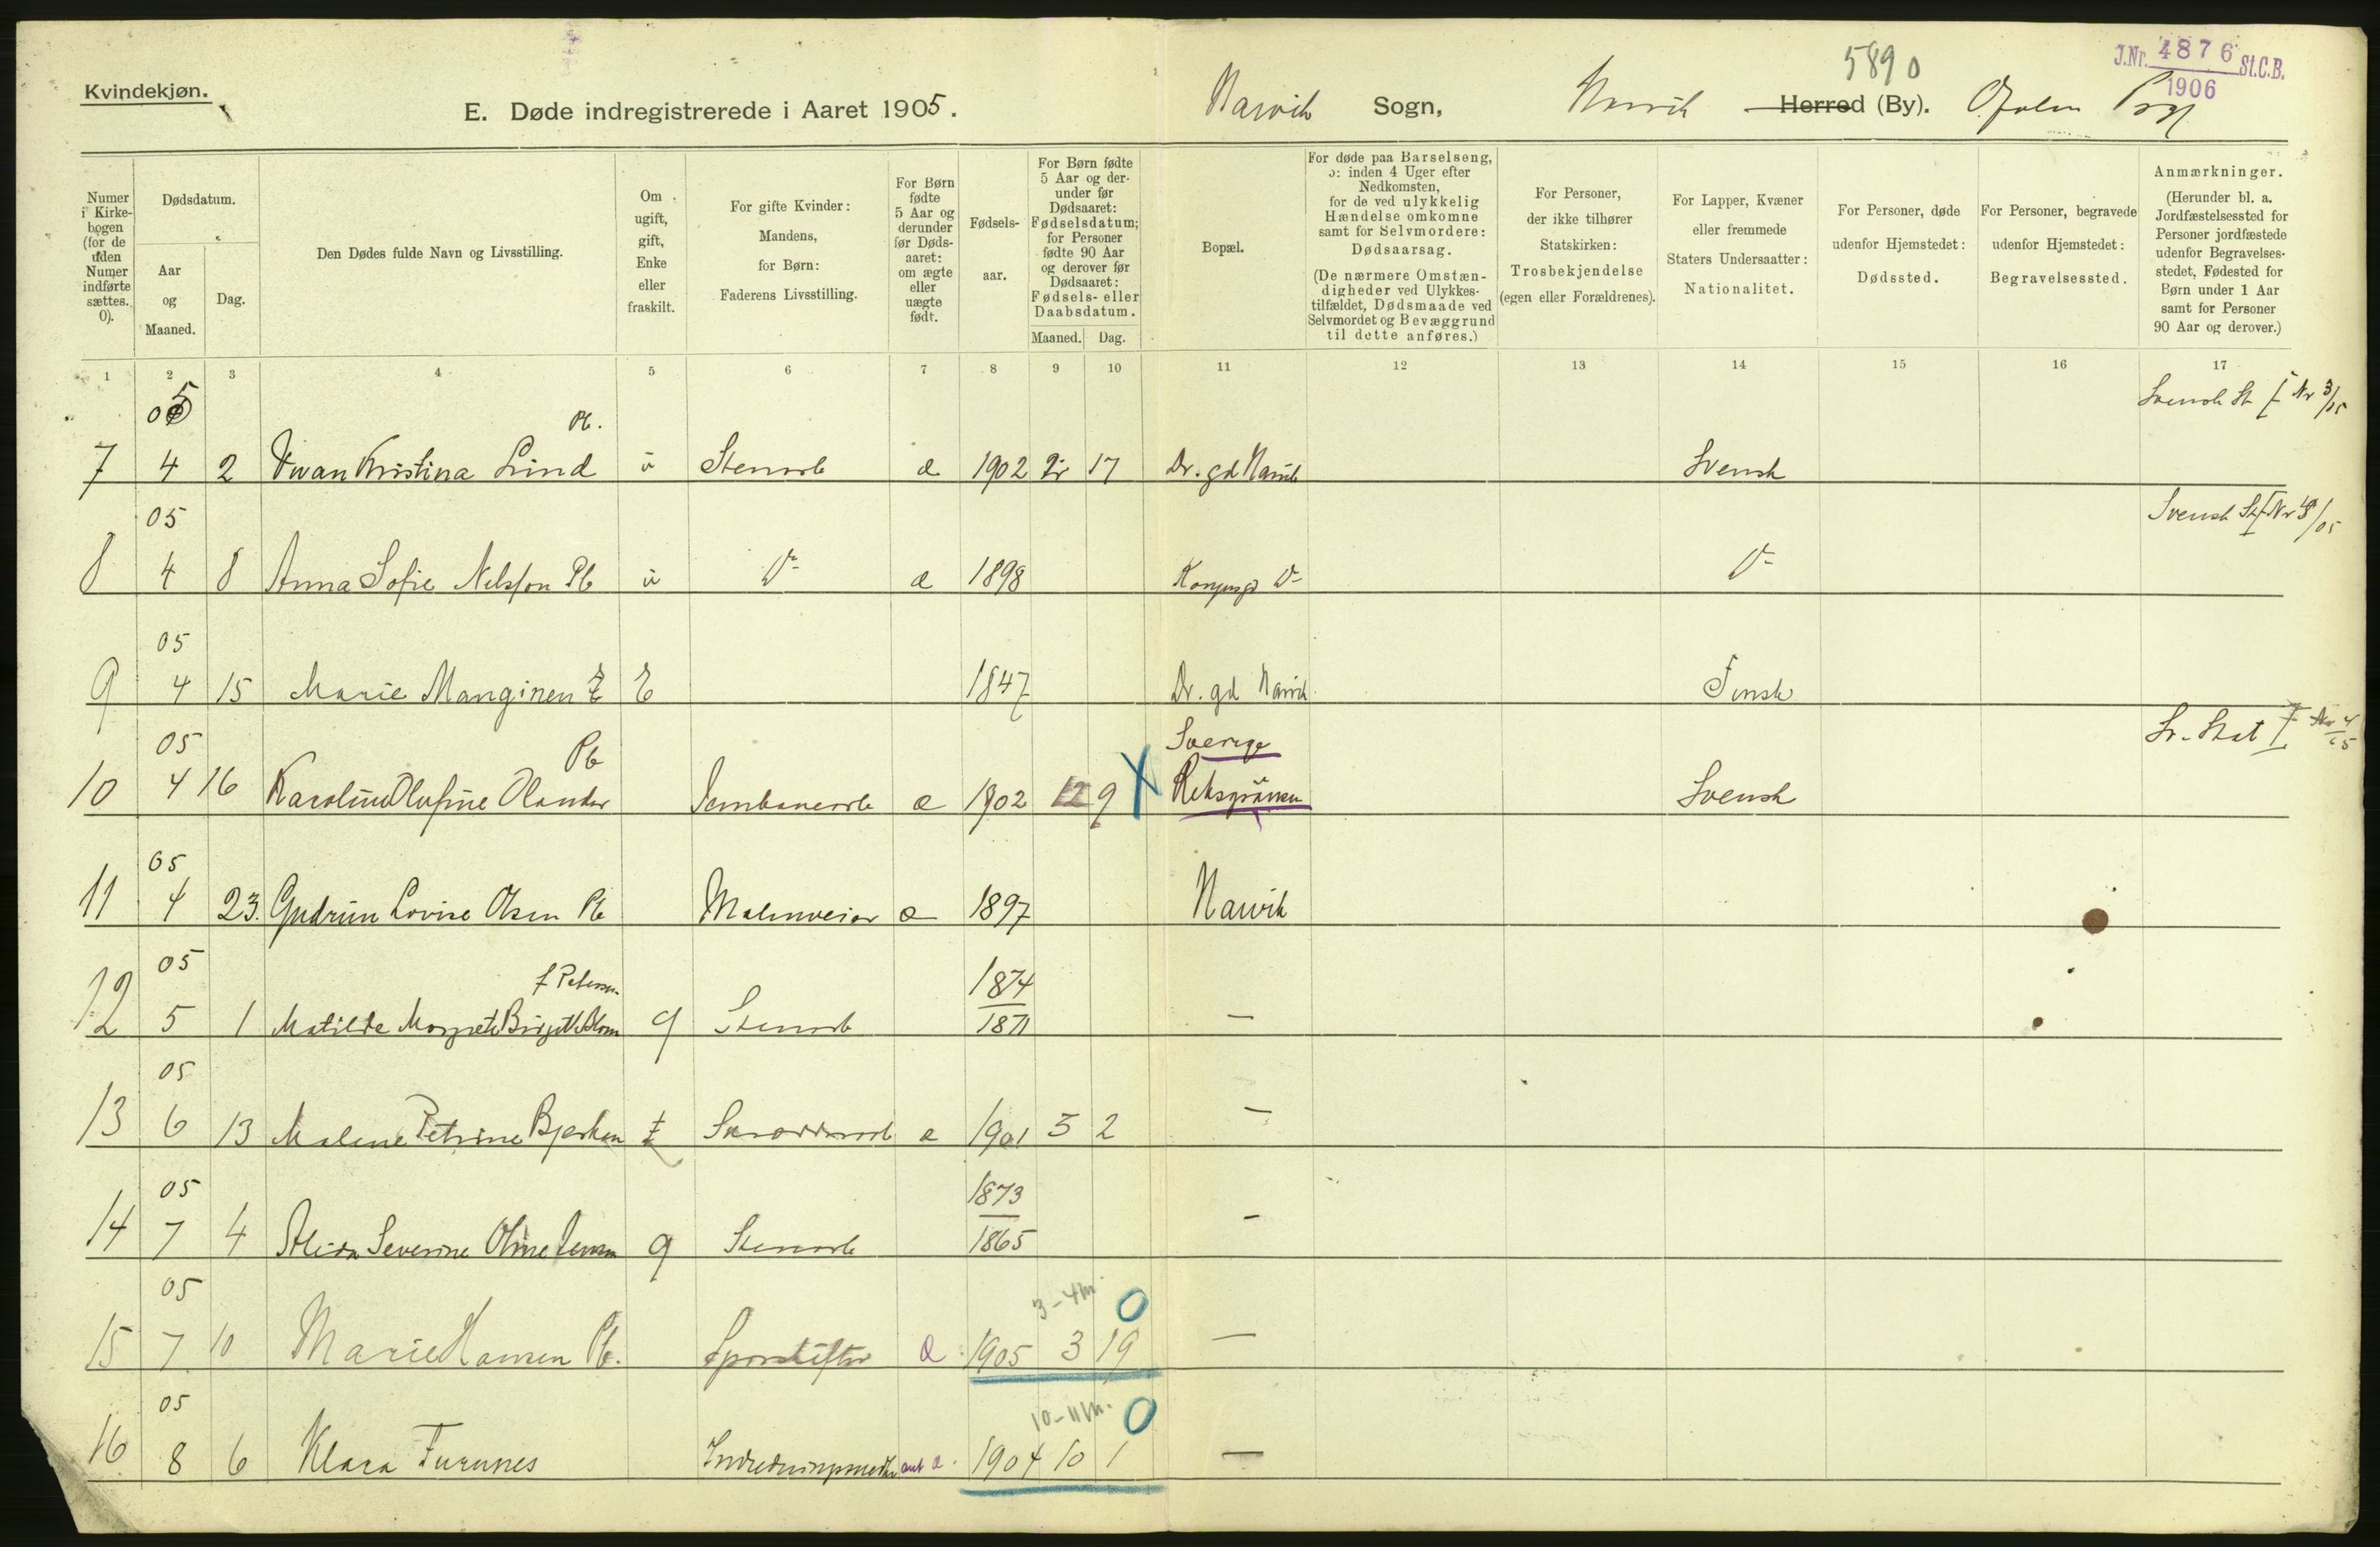 Kvindekjøn.
E. Døde indregistrerede i Aaret 1905.
Narvik Sogn, Narvik Herred (By). Ofoten Prgj
5890
J.Nr. 4876 St.C.B.
1906
Numer i Kirkebogen (for de uden Numer indførte sættes. 0).
Dødsdatum.
Aar og Maaned.
Dag.
Den Dødes fulde Navn og Livsstilling.
Om ugift, gift, Enke eller fraskilt.
For gifte Kvinder: Mandens, for Børn: Faderens Livsstilling.
For Børn fødte 5 Aar og derunder før Dødsaaret: om ægte eller uægte født.
Fødselsaar.
For Børn fødte 5 Aar og derunder før Dødsaaret: Fødselsdatum; for Personer fødte 90 Aar og derover før Dødsaaret: Fødsels- eller Daabsdatum.
Maaned. Dag.
Bopæl.
For døde paa Barselseng, ɔ: inden 4 Uger efter Nedkomsten, for de ved ulykkelig Hændelse omkomne samt for Selvmordere: Dødsaarsag.
(De nærmere Omstændigheder ved Ulykkestilfældet, Dødsmaade ved Selvmordet og Bevæggrund til dette anføres.)
For Personer, der ikke tilhører Statskirken: Trosbekjendelse (egen eller Forældrenes).
For Lapper, Kvæner eller fremmede Staters Undersaatter: Nationalitet.
For Personer, døde udenfor Hjemstedet: Dødssted.
For Personer, begravede udenfor Hjemstedet: Begravelsessted.
Anmærkninger.
(Herunder bl. a. Jordfæstelsessted for Personer jordfæstede udenfor Begravelsesstedet, Fødested for Børn under 1 Aar samt for Personer 90 Aar og derover.)
1 2 3 4 5 6 7 8 9 10 11 12 13 14 15 16 17
05 Pb. Svensk St I Nr 3/05
7 4 2 Kristina Lind u Stenarb æ 1902 17 Dr. gd Narvik Svensk
05 Svensk St I Nr
8 4 8 Anna Sofie Nelsson Pb u D- æ 1898 Kongensgd D- D-
05
9 4 15 Marie Manginen E 1847 Dr. gd Narvik Finsk
05 Pb Sverige Sv. Stat I Nr 4/05
10 4 16 Karoline Olufine Olander Jernbanearb æ 1902 12 9 Riksgränsen Svensk
05
11 4 23. Gudrun Lovise Olsen Pb Malmveier æ 1897 Narvik
05 f Petersen 1874
12 5 1 Matilde Margrete Birgitte Blom g Stenarb 1871 —
05
13 6 13 Malene Petrine Bjerkan æ 1901 5 2 —
05 1873
14 7 4 Alida Severine Oline Jensen g Stenarb 1865 —
05 3-4 m 0
15 7 10 Marie Hansen Pb. Sporskifter æ 1905 3 19 —
05 10-11 m. 0
16 8 6 Klara Furunes ant æ. 1904 10 1 —